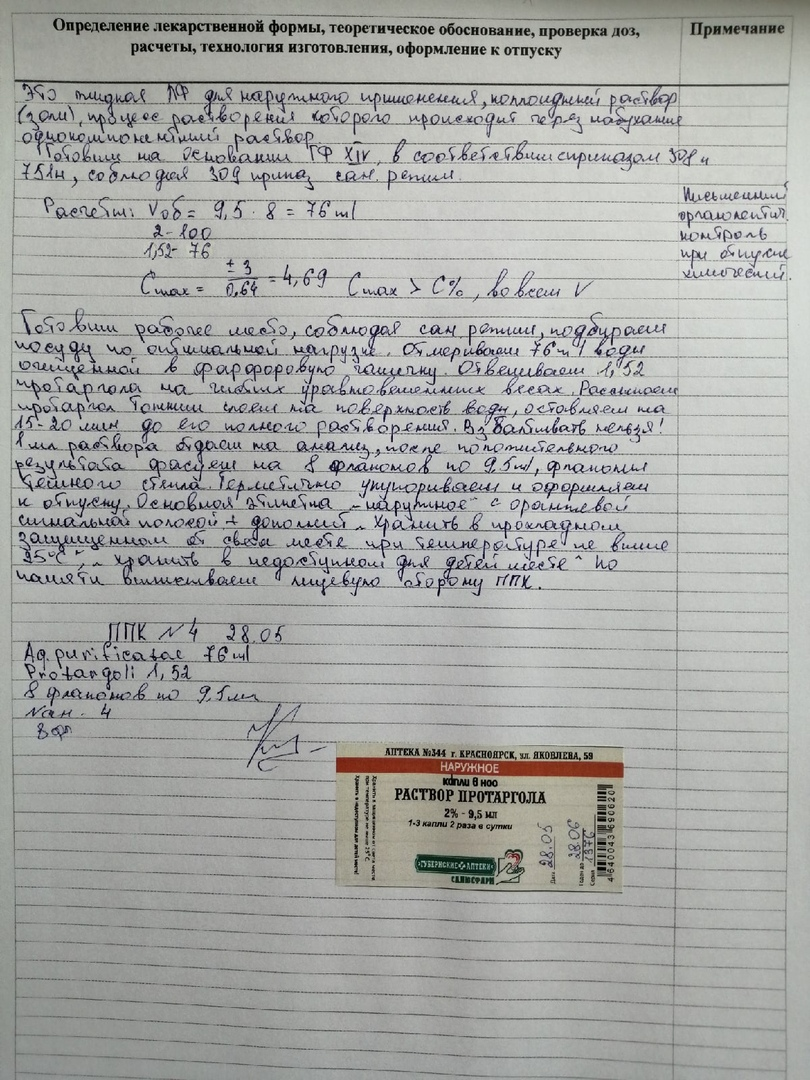 Определение лекарственной формы, теоретическое обоснование, проверка доз,
расчеты, технология изготовления, оформление к отпуску
Примечание
Это жидкая ЛФ для наружного применения, коллоидный раствор
(золи), процесс растворения которого происходит через набухание
однокомпонентный раствор
Готовим на основании ГФ XIV, в соответствии с приказом 309 и
751н, соблюдая 309 приказ сан. режим.
Расчеты: Vоб = 9,5 · 8 = 76 ml
2 - 100
1,52 - 76
Cmax = ± 3 / 0,64 = 4,69 Cmax > C%, во всем V
Письменный
органолептич.
контроль
при отпуске
химический.
Готовим рабочее место, соблюдая сан режим, подбираем
посуду по оптимальной нагрузке. Отмериваем 76 ml воды
очищенной в фарфоровую чашечку. Отвешиваем 1,52
протаргола на чистых уравновешенных весах. Рассыпаем
протаргол тонким слоем на поверхность воды, оставляем на
15-20 мин до его полного растворения. Взбалтывать нельзя!
1 мл раствора отдаем на анализ, после положительного
результата фасуем на 8 флаконов по 9,5 ml, флаконы
темного стекла. Герметично укупориваем и оформляем
к отпуску. Основная этикетка „наружное“ с оранжевой
сигнальной полосой + дополнит „Хранить в прохладном
защищенном от света месте при температуре не выше
25°C“, „хранить в недоступном для детей месте“ По
памяти выписываем лицевую сторону ППК.
ППК № 4 28.05
Aq. purificatae 76 ml
Protargoli 1,52
8 флаконов по 9,5 мл
Nан. 4
АПТЕКА №344 г. КРАСНОЯРСК, ул. ЯКОВЛЕВА, 59
НАРУЖНОЕ
капли в нос
РАСТВОР ПРОТАРГОЛА
2% - 9,5 мл
1-3 капли 2 раза в сутки
•ГУБЕРНСКИЕ•АПТЕКИ•
Хранить в недоступном для детей месте!
Дата 28.05
Годен до 28.06
Серия 1376
4 640043 690620